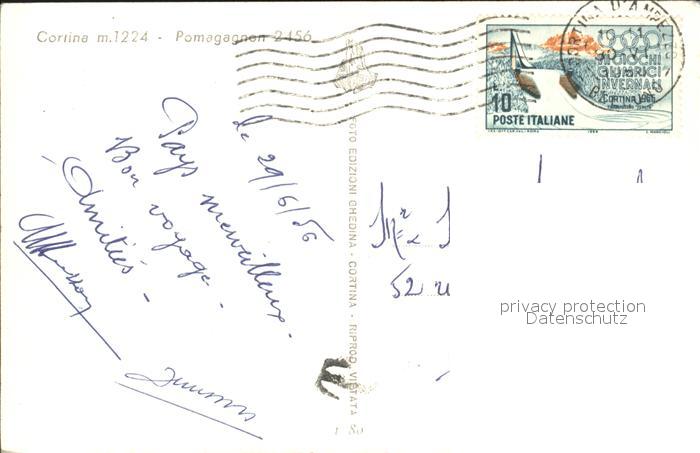 Cortina m.1224 - Pomagagnon 2456
le 29/6/56
Pays merveilleux.
Bon voyage.
Amitiés -
FOTO EDIZIONI GHEDINA - CORTINA - RIPROD. VIETATA
1 80
CORTINA D'AMPEZZO
VII GIOCHI
OLIMPICI
INVERNALI
CORTINA 1956
10
POSTE ITALIANE
1956
52
privacy protection
Datenschutz